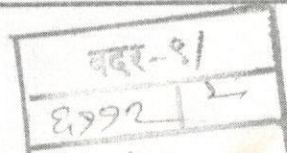 बदर-१/
६११२ | २